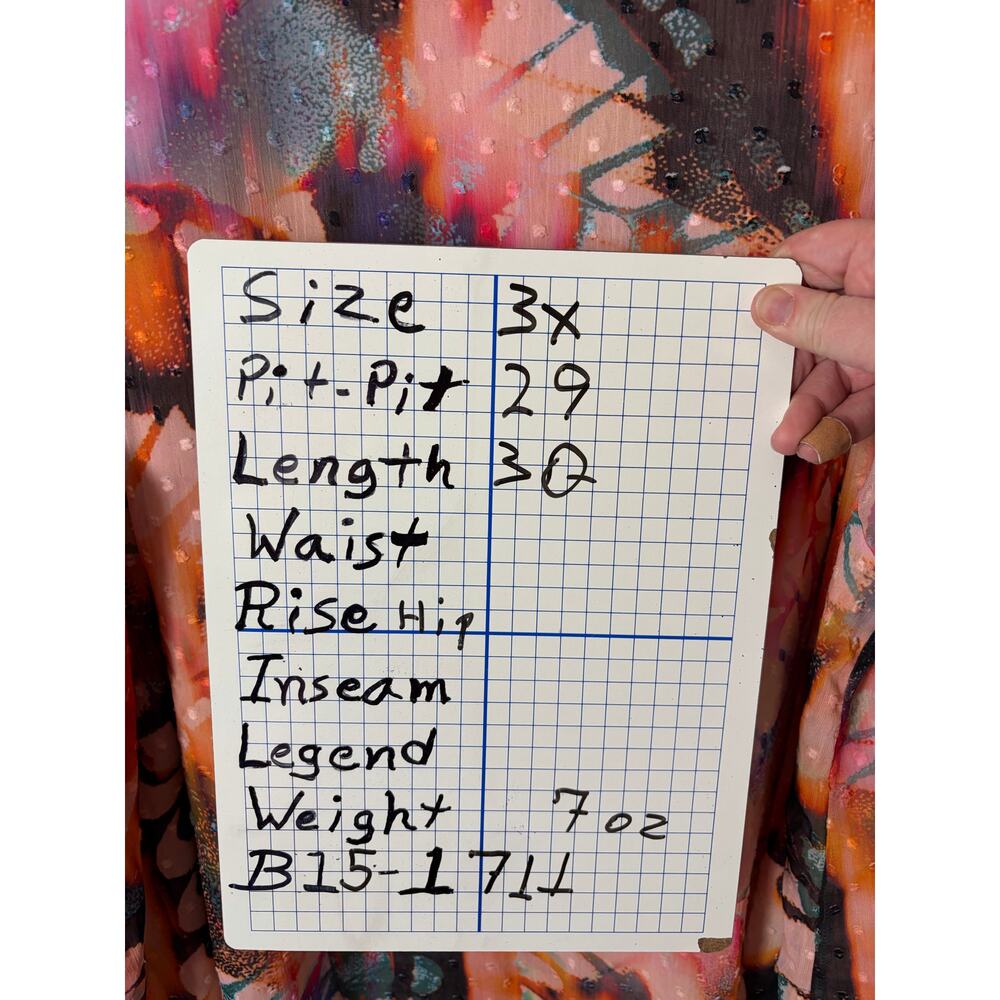 Size 3X
Pit-Pit 29
Length 30
Waist
Rise Hip
Inseam
Legend
Weight 7 oz
B15-1711